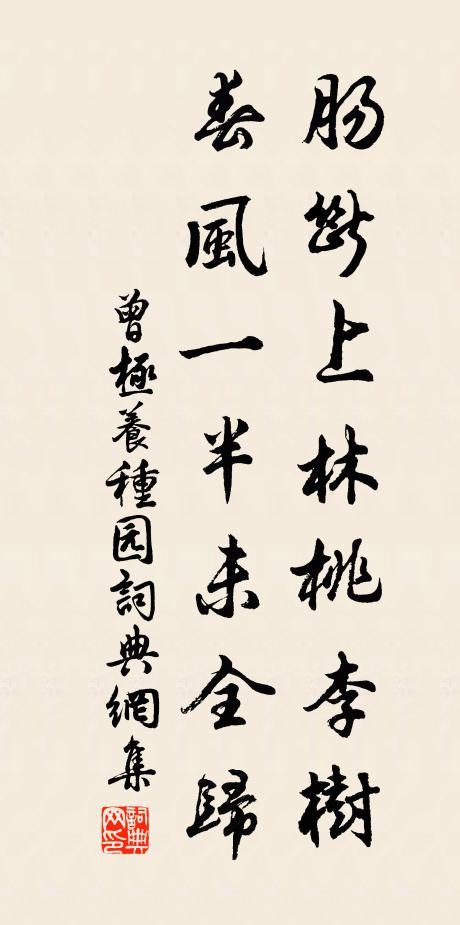 腸斷上林桃李樹
春風一半未全歸
曾極養種园詞典網集
詞典网印